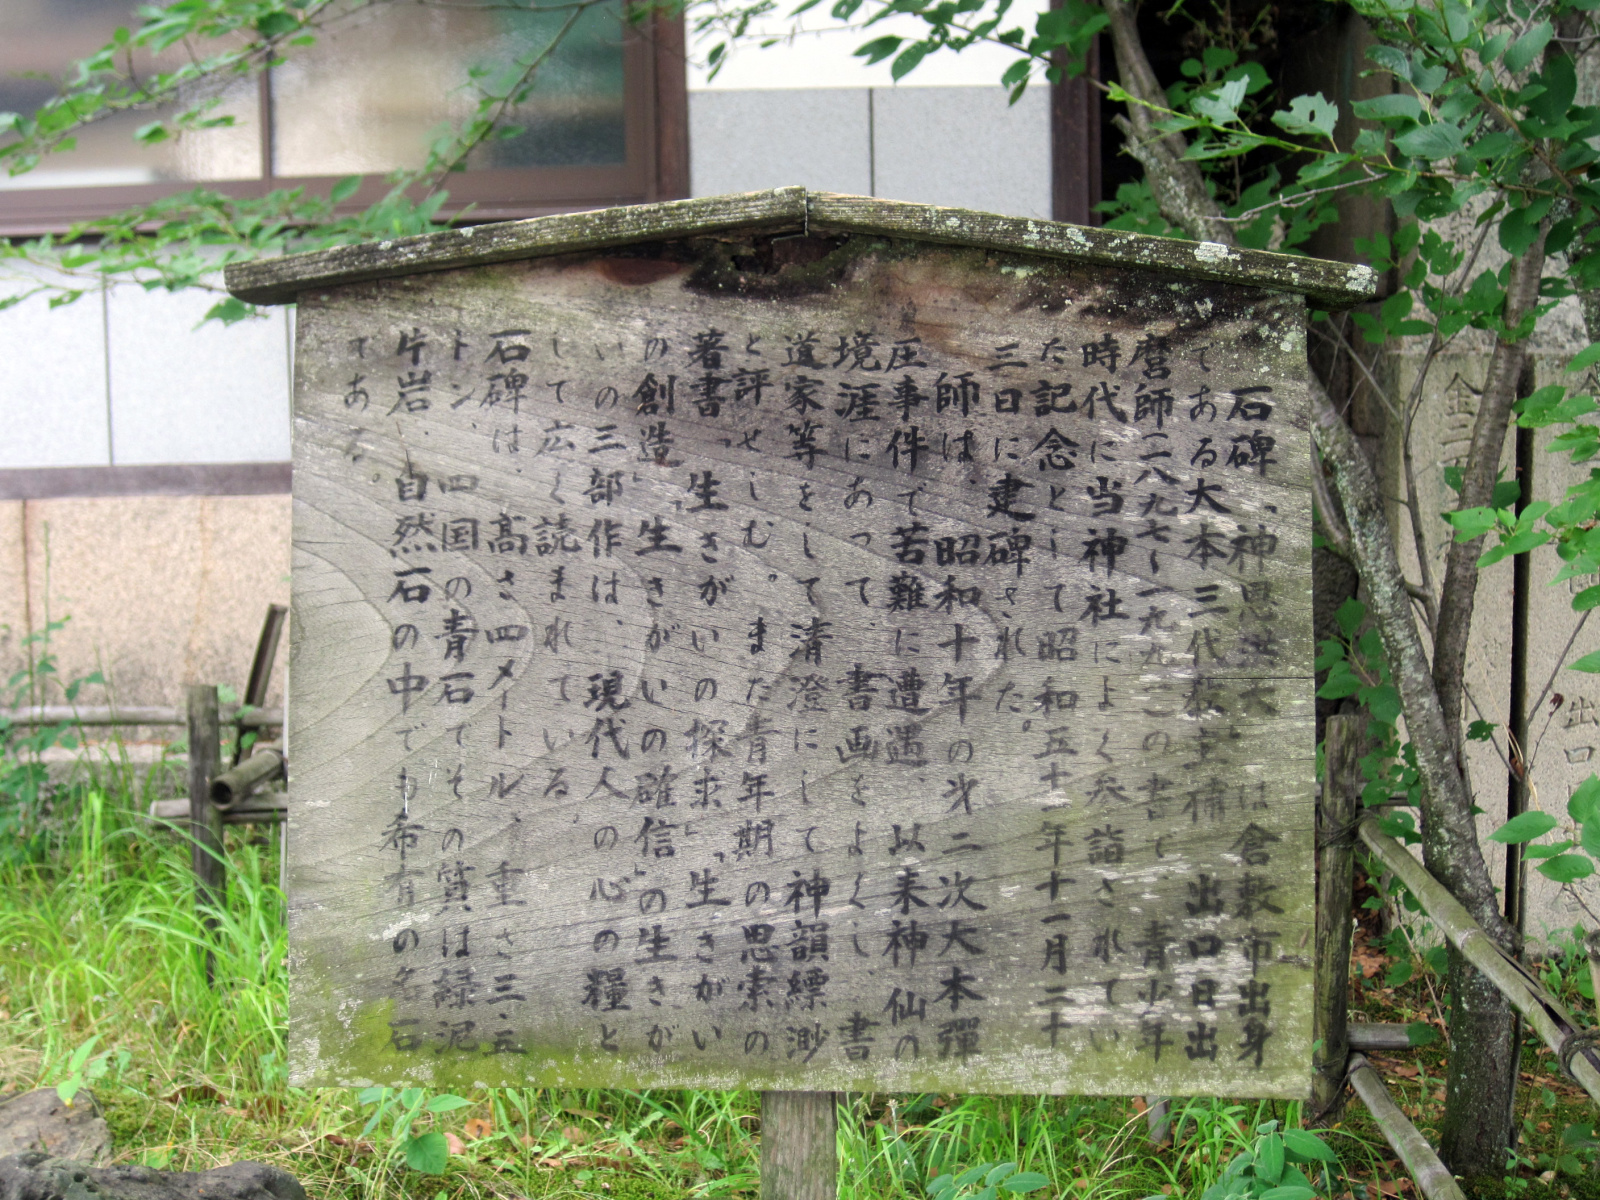 石碑「神恩洪大」は倉敷市出身
である大本三代教主補 出口日出
麿師(一八九七〜一九九一)の書で、青少年
時代に当神社によく参詣されてい
た記念として昭和五十一年十一月二十
三日に建碑された。
師は、昭和十年の第二次大本彈
圧事件で苦難に遭遇、以来神仙の
境涯にあって、書画をよくし、書
道家等をして清澄にして神韻縹渺
と評せしむ。また青年期の思索の
著書「生きがいの探求」「生きがい
の創造」「生きがいの確信」の生きが
いの三部作は、現代人の心の糧と
して広く読まれている。
石碑は、高さ四メートル、重さ三、五
トン、四国の青石でその質は緑泥
片岩、自然石の中でも希有の名石
である。
出口